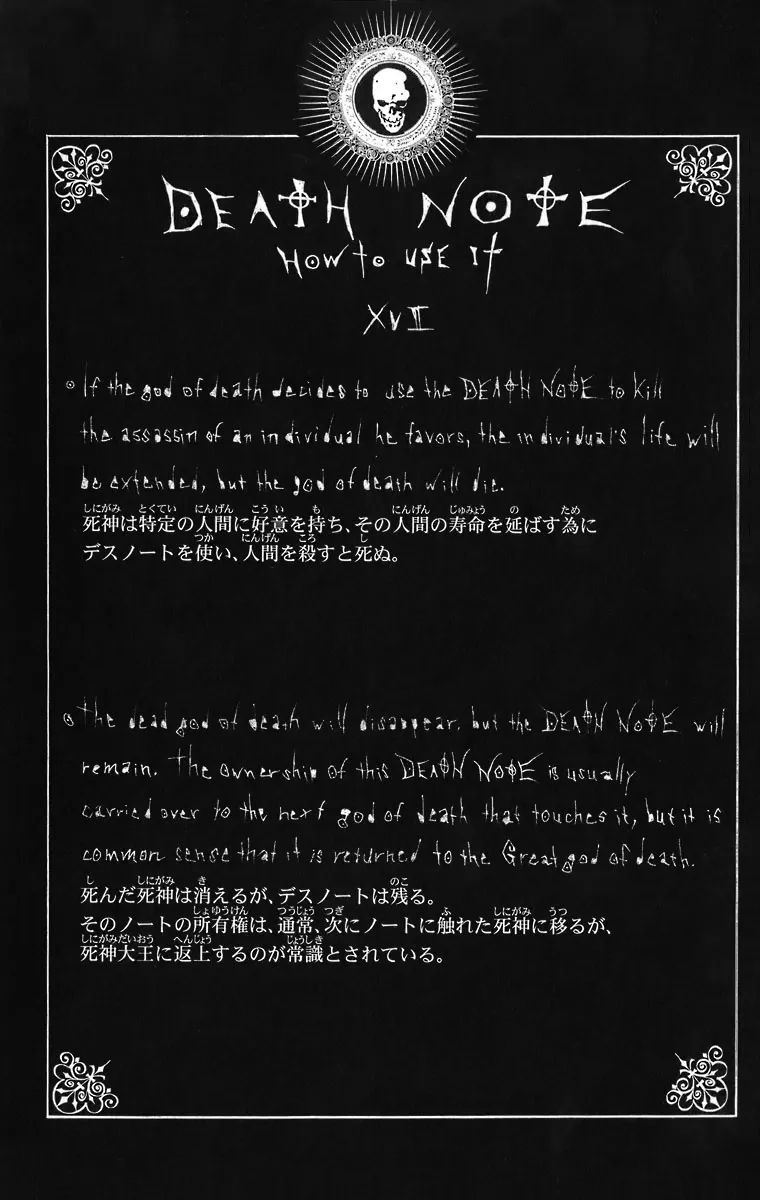 DEATH NOTE
HOW to USE It
XVII
If the god of death decides to use the DEATH NOTE to kill
the assassin of an individual he favors, the individual's life will
be extended, but the god of death will die.
死神は特定の人間に好意を持ち、その人間の寿命を延ばす為に
デスノートを使い、人間を殺すと死ぬ。
The dead god of death will disappear, but the DEATH NOTE will
remain. The ownership of this DEATH NOTE is usually
carried over to the next god of death that touches it, but it is
common sense that it is returned to the Great god of death.
死んだ死神は消えるが、デスノートは残る。
そのノートの所有権は、通常、次にノートに触れた死神に移るが、
死神大王に返上するのが常識とされている。